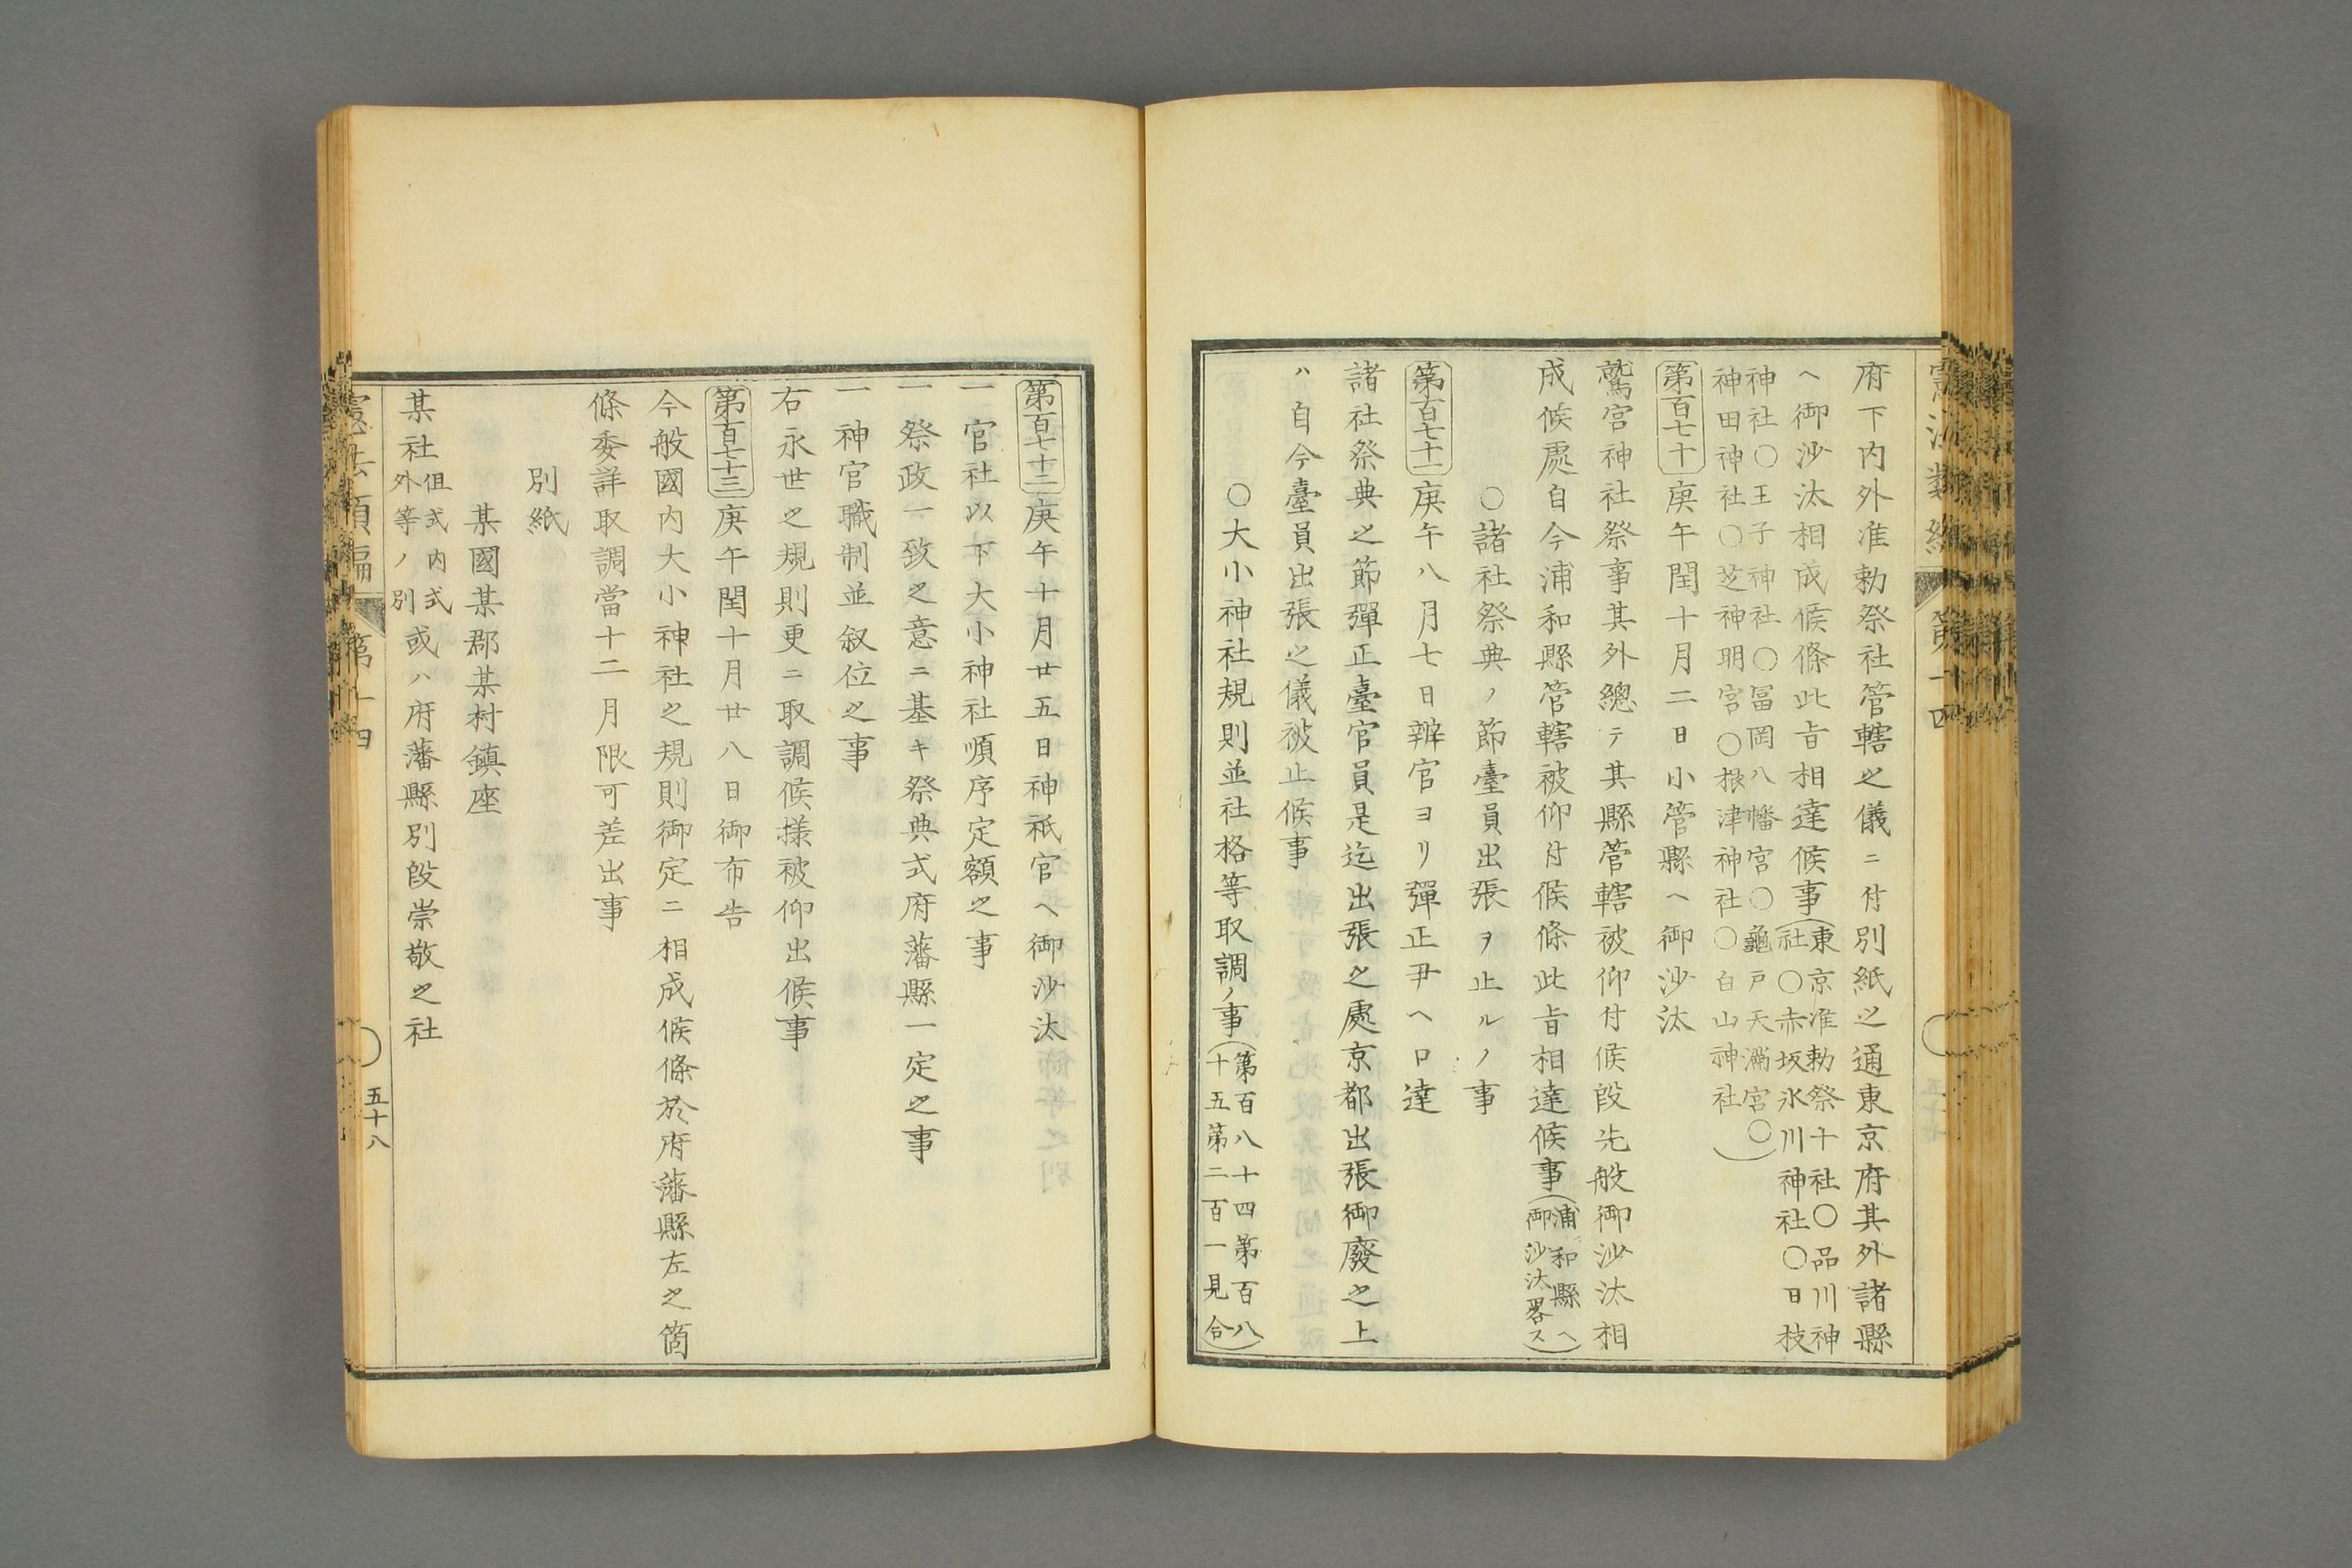 府下内外准勅祭社管轄之儀ニ付別紙之通東京府其外諸縣
ヘ御沙汰相成候條此旨相達候事(東京准勅祭十社〇品川神
社〇赤坂氷川神社〇日枝
神社〇王子神社〇冨岡八幡宮〇龜戸天滿宮〇
神田神社〇芝神明宮〇根津神社〇白山神社)
第百七十庚午閏十月二日小管縣ヘ御沙汰
鷲宮神社祭事其外總テ其縣管轄被仰付候段先般御沙汰相
成候處自今浦和縣管轄被仰付候條此旨相達候事(浦和縣ヘ
御沙汰畧ス)
〇諸社祭典ノ節臺員出張ヲ止ルノ事
第百七十一庚午八月七日辨官ヨリ彈正尹ヘ口達
諸社祭典之節彈正臺官員是迄出張之處京都出張御廢之上
ハ自今臺員出張之儀被止候事
〇大小神社規則並社格等取調ノ事(第百八十四第百八
十五第二百一見合)
第百七十二庚午十月廿五日神祇官ヘ御沙汰
一官社以下大小神社順序定額之事
一祭政一致之意ニ基キ祭典式府藩縣一定之事
一神官職制並叙位之事
右永世之規則更ニ取調候樣被仰出候事
第百七十三庚午閏十月廿八日御布告
今般國内大小神社之規則御定ニ相成候條於府藩縣左之箇
條委詳取調當十二月限可差出事
別紙
某國某郡某村鎮座
某社但式内式
外等ノ別或ハ府藩縣別段崇敬之社
憲法類編
第十四
五十八